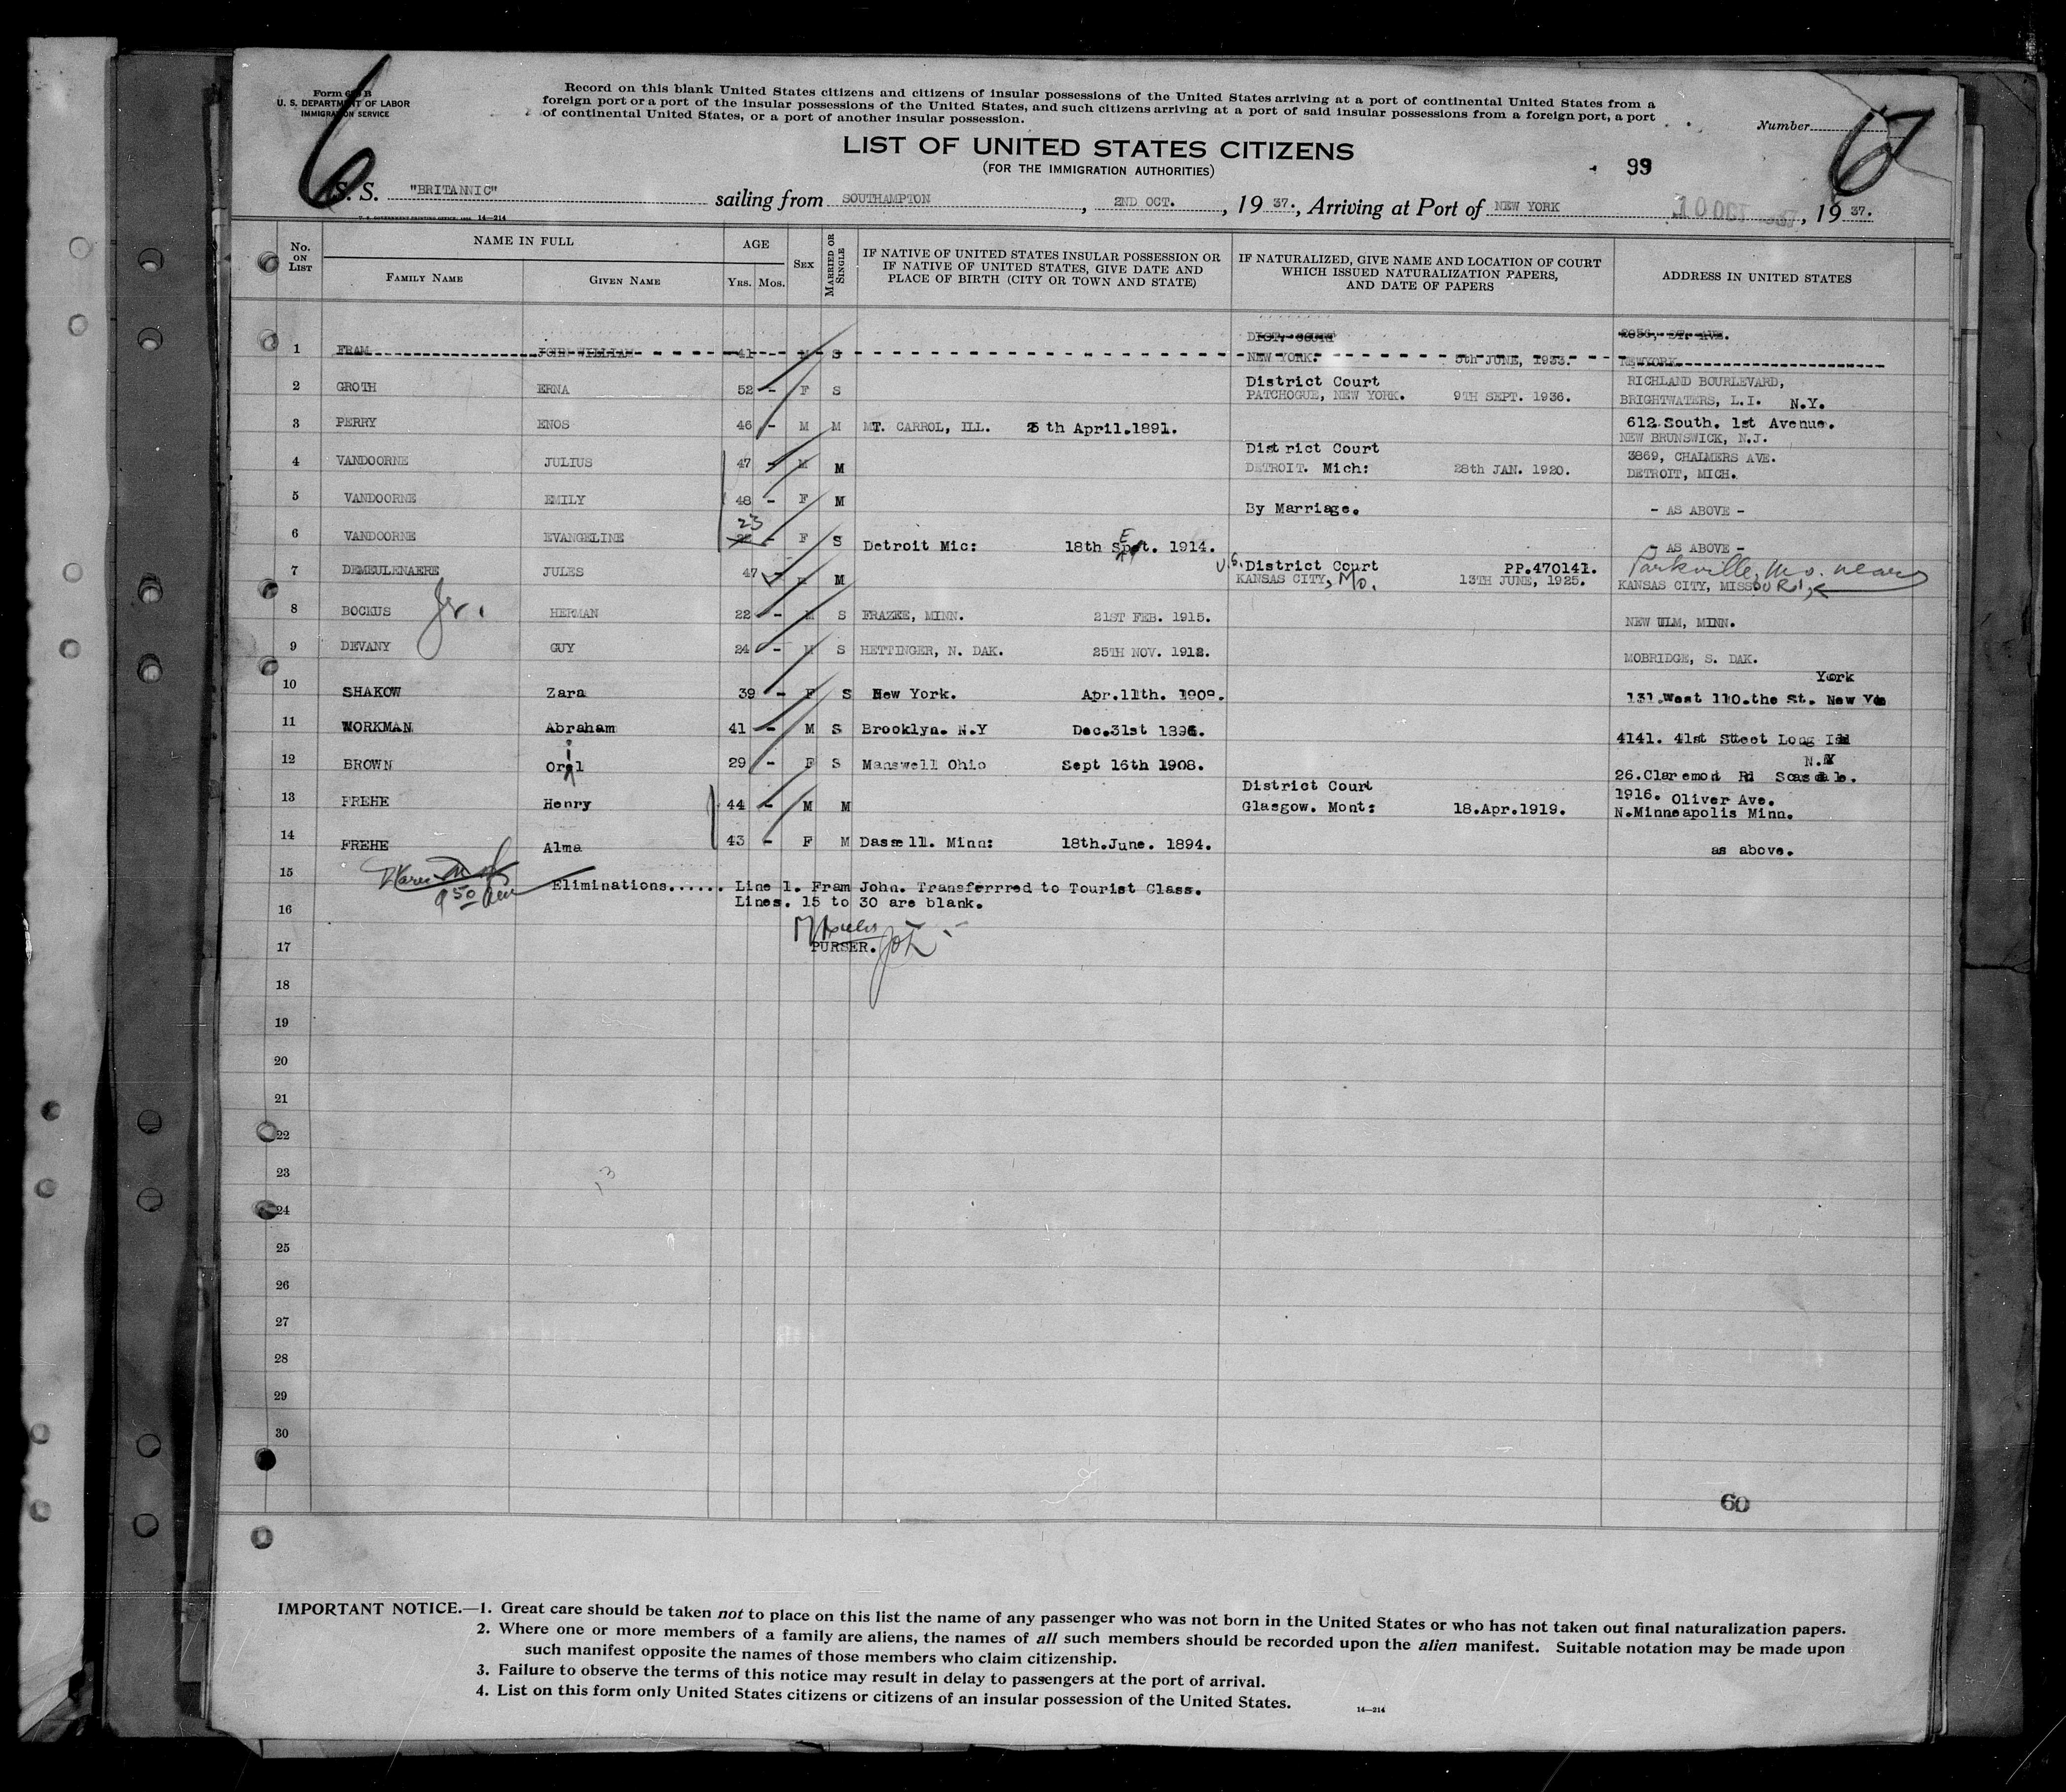 Form 630 B
U. S. DEPARTMENT OF LABOR
IMMIGRATION SERVICE
Record on this blank United States citizens and citizens of insular possessions of the United States arriving at a port of continental United States from a
foreign port or a port of the insular possessions of the United States, and such citizens arriving at a port of said insular possessions from a foreign port, a port
of continental United States, or a port of another insular possession.
Number
6
LIST OF UNITED STATES CITIZENS
(FOR THE IMMIGRATION AUTHORITIES)
99
S. S. "BRITANNIC" sailing from SOUTHAMPTON, 2ND OCT., 19 37., Arriving at Port of NEW YORK 10 OCT 1937, 19 37.
U. S. GOVERNMENT PRINTING OFFICE 14—214
No. ON LIST
NAME IN FULL
FAMILY NAME GIVEN NAME
AGE
YRS. MOS.
SEX
MARRIED OR SINGLE
IF NATIVE OF UNITED STATES INSULAR POSSESSION OR
IF NATIVE OF UNITED STATES, GIVE DATE AND
PLACE OF BIRTH (CITY OR TOWN AND STATE)
IF NATURALIZED, GIVE NAME AND LOCATION OF COURT
WHICH ISSUED NATURALIZATION PAPERS,
AND DATE OF PAPERS
ADDRESS IN UNITED STATES
DIST. COURT
1 FRAM JOHN WILLIAM 41 - M S NEW YORK. 5th JUNE, 1933. NEWYORK
District Court RICHLAND BOURLEVARD,
2 GROTH ERNA 52 - F S PATCHOGUE, NEW YORK. 9TH SEPT. 1936. BRIGHTWATERS, L.I. N.Y.
3 PERRY ENOS 46 - M M MT. CARROL, ILL. 25th April.1891. 612 South. 1st Avenue.
NEW BRUNSWICK, N.J.
District Court 3869, CHALMERS AVE.
4 VANDOORNE JULIUS 47 - M M DETROIT. Mich: 28th JAN. 1920. DETROIT, MICH.
5 VANDOORNE EMILY 48 - F M By Marriage. - AS ABOVE -
23
6 VANDOORNE EVANGELINE - F S Detroit Mic: 18th Sept. 1914. - AS ABOVE -
U.S. District Court PP.470141. Parkville, Mo. near
7 DEMEULENAERE JULES 47 - M M KANSAS CITY, Mo. 13TH JUNE, 1925. KANSAS CITY, MISSOURI,
8 BOCKUS Jr. HERMAN 22 - M S FRAZEE, MINN. 21ST FEB. 1915. NEW ULM, MINN.
9 DEVANY GUY 24 - M S HETTINGER, N. DAK. 25TH NOV. 1912. MOBRIDGE, S. DAK.
York
10 SHAKOW Zara 39 - F S New York. Apr.11th. 1908. 131.West 110.the St. New
11 WORKMAN Abraham 41 - M S Brooklyn. N.Y Dec.31st 1895. 4141. 41st Steet Long Isld
N.Y
12 BROWN Oril 29 - F S Manswell Ohio Sept 16th 1908. 26.Claremont Rd Scasdale.
District Court 1916. Oliver Ave.
13 FREHE Henry 44 - M M Glasgow. Mont: 18.Apr.1919. N.Minneapolis Minn.
14 FREHE Alma 43 - F M Dassell. Minn: 18th.June. 1894. as above.
15 Eliminations...... Line 1. Fram John. Transferrred to Tourist Class.
Lines. 15 to 30 are blank.
9 50
16
17 PURSER.
18
19
20
21
22
23
13
24
25
26
27
28
29
30
60
IMPORTANT NOTICE.—1. Great care should be taken not to place on this list the name of any passenger who was not born in the United States or who has not taken out final naturalization papers.
2. Where one or more members of a family are aliens, the names of all such members should be recorded upon the alien manifest. Suitable notation may be made upon
such manifest opposite the names of those members who claim citizenship.
3. Failure to observe the terms of this notice may result in delay to passengers at the port of arrival.
4. List on this form only United States citizens or citizens of an insular possession of the United States.
14—214